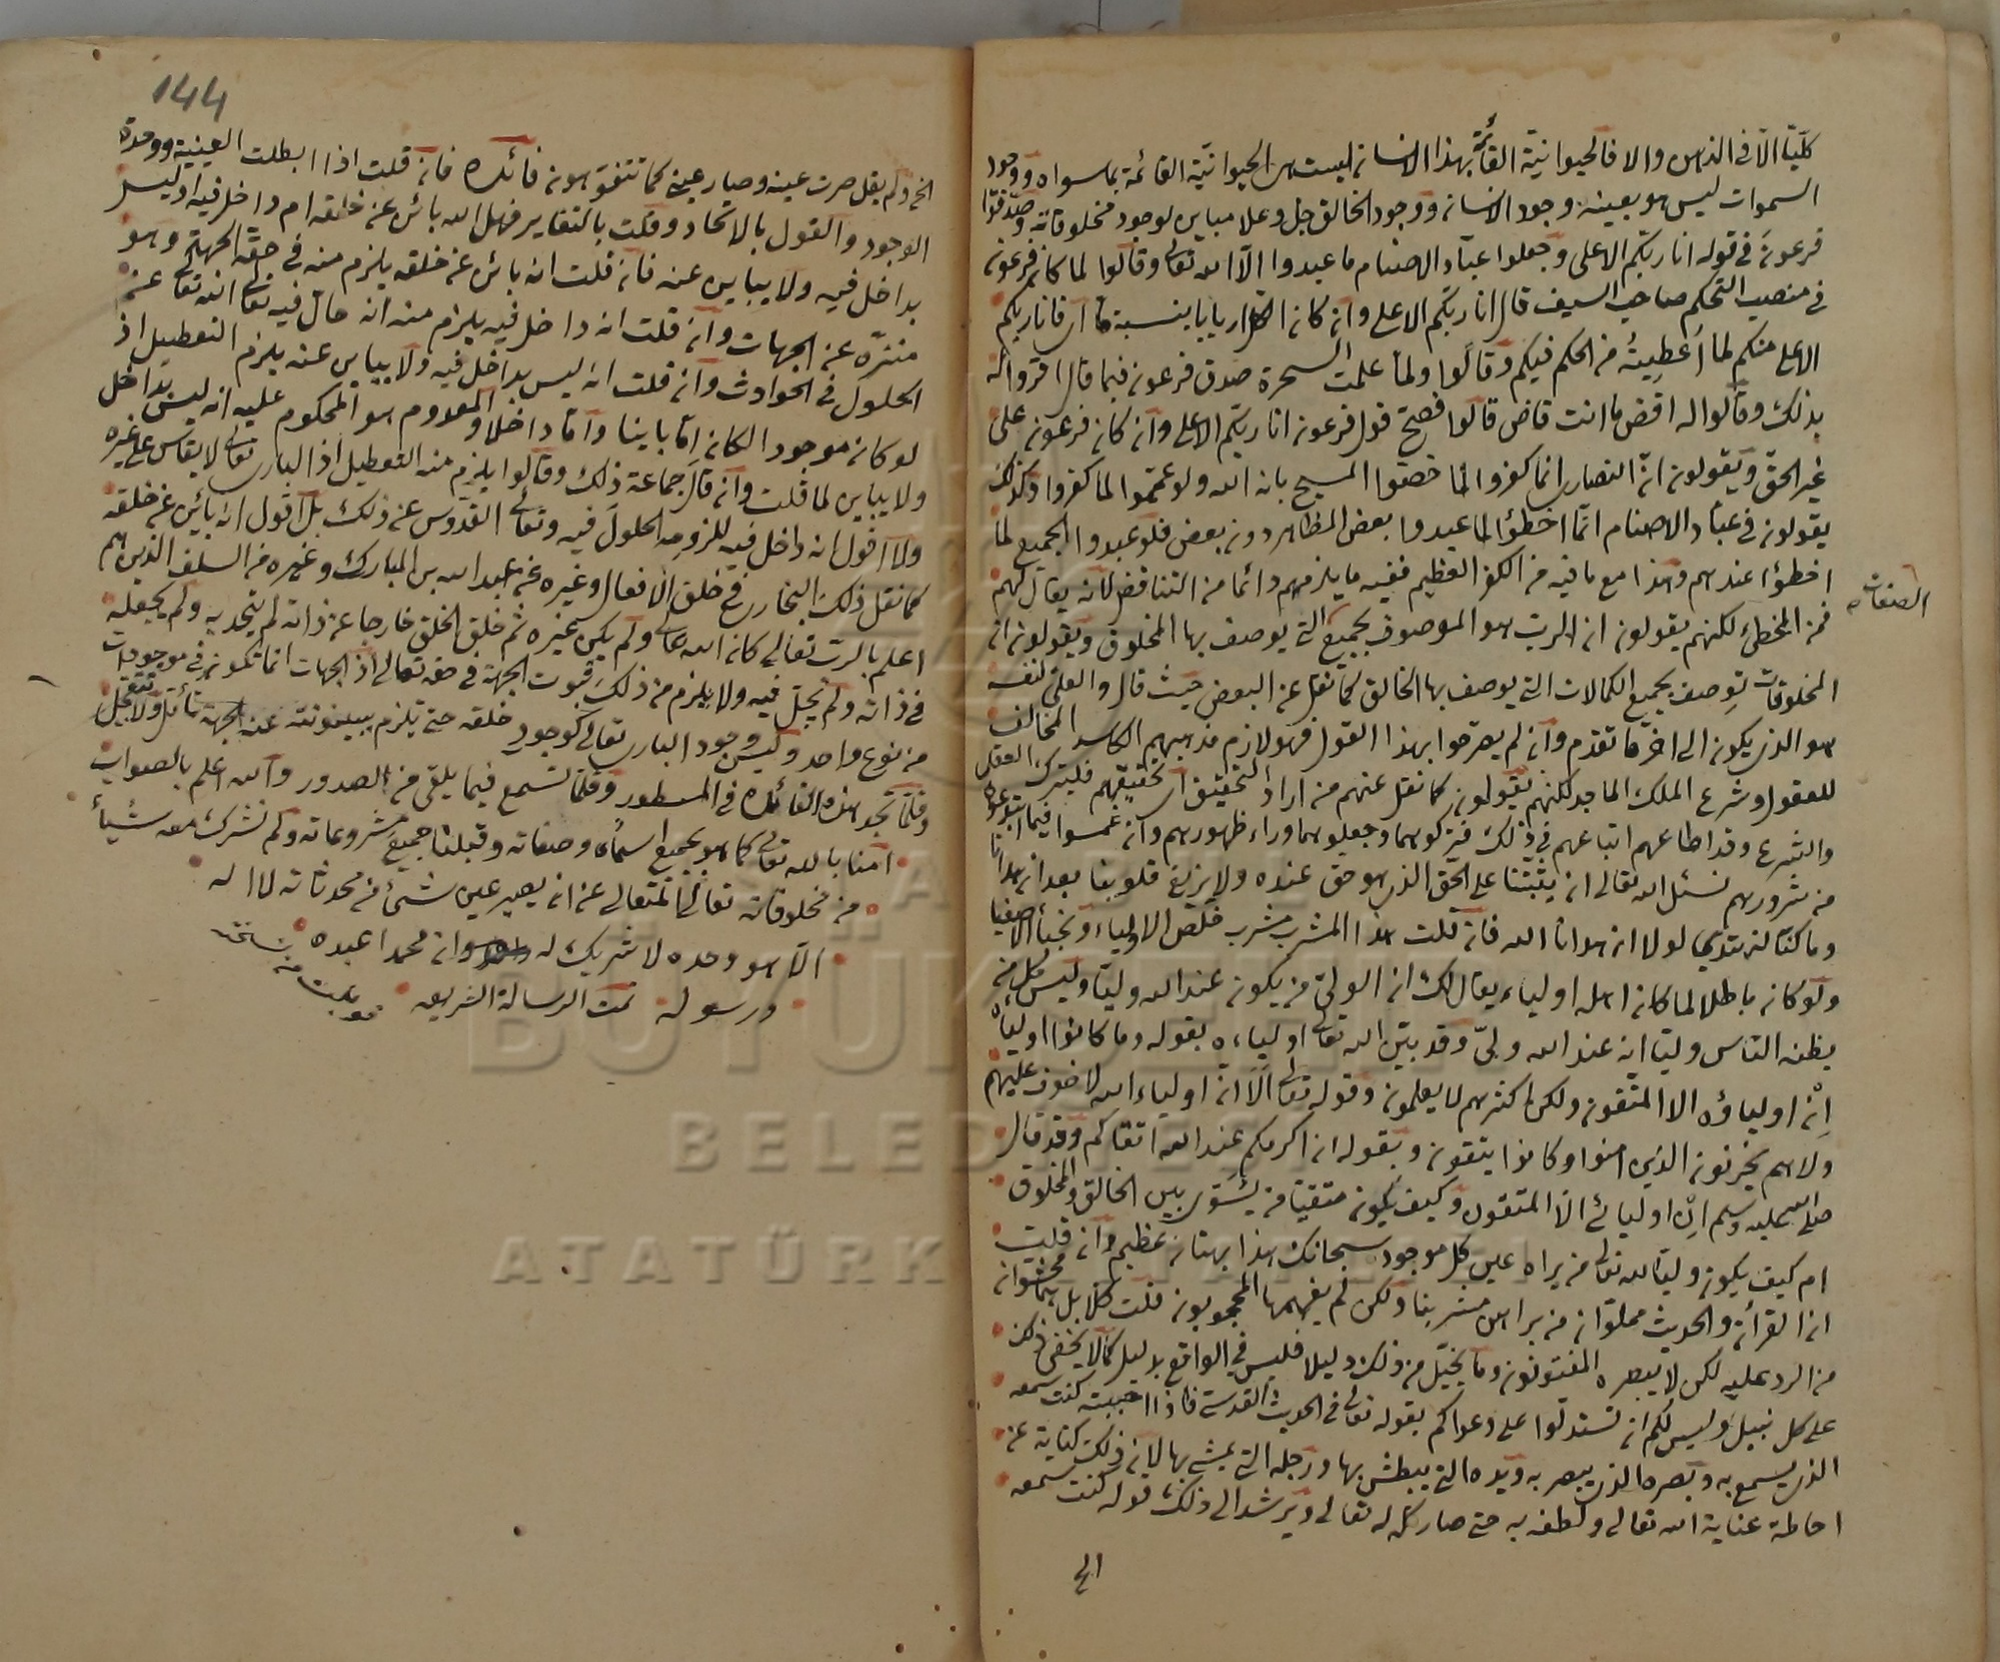 كليّا الا في الذهن والا فالحيوانية القائمة بهذا الانسان ليست هى الحيوانيّة القائمة بما سواه ووجود
السموات ليس هو بعينه وجود الانسان ووجود الخالق جل وعلا مباين لوجود مخلوقاته وصدّقوا
فرعون في قوله انا ربّكم الاعلى وجعلوا عبّاد الاصنام ما عبدوا الّا الله تعالى وقالوا لما كان فرعون
في منصب التحكم صاحب السيف قال انا ربّكم الاعلى وان كان الكل اربابا بنسبة ما اى فانا ربكم
الاعلى منكم لما اُعطِيتُه من الحكم فيكم وقالوا ولما علمت السحرة صدق فرعون فيما قال اقروا له
بذلك وقالوا له اقض ما انت قاض قالوا فصحّ قول فرعون انا ربّكم الاعلى وان كان فرعون على
غير الحقّ ويقولون انّ النصارى انما كفروا لما خصّوا المسيح بانه الله ولو عمّموا لما كفروا وكذلك
يقولون في عبّاد الاصنام انّما اخطؤا لما عبدوا بعض المظاهر دون بعض فلو عبدوا الجميع لما
اخطؤا عندهم وهذا مع ما فيه من الكفر العظيم ففيه ما يلزمهم دائما من التناقض لانه يقال لهم
فمن المخطئ لكنهم يقولون ان الرب هو الموصوف بجميع التي يوصف بها المخلوق ويقولون ان
الصفات صح
المخلوقات توصف بجميع الكمالات التي يوصف بها الخالق كما نقل عن البعض حيث قال والعلىّ لنفسه
هو الذى يكون الى اخر ما تقدم وان لم يصرحوا بهذا القول فهو لازم مذهبهم الكاسد المخالف
للعقول وشرع الملك الماجد لكنهم يقولون كما نقل عنهم من اراد التحقيق اى تحقيقهم فليترك العقل
والشرع وقد اطاعهم اتباعهم في ذلك فتركوهما وجعلوهما وراء ظهورهم وانغمسوا فيما ابتدعوه
من شرورهم نسئل الله تعالى ان يثبّتنا على الحقّ الذى هو حق عنده ولا يزيغ قلوبنا بعد ان هدانا
وما كنّا لنهتدي لولا ان هدانا الله فان قلت هذا المشرب مشرب خلّص الاولياء ونجباء الاصفيا
ولو كان باطلا لما كان اهله اولياء يقال لك ان الولىّ من يكون عند الله وليّا وليس كل من
يظنه الناس وليّا انه عند الله ولىّ وقد بيّن الله تعالى اولياءه بقوله وما كانوا اولياءه
اِنْ اولياؤه الا المتّقون ولكن اكثرهم لا يعلمون وقوله تعالى اَلَا انّ اولياء الله لا خوف عليهم
ولا هم يحزنون الذين امنوا وكانوا يتقون وبقوله ان اكرمكم عند الله اتقاكم وقد قال
صلى الله عليه وسلم اِنْ اوليائى الّا المتقون وكيف يكون متقيّا من يسوّى بين الخالق والمخلوق
ام كيف يكون وليّا لله تعالى من يراه عين كل موجود سبحانك هذا بهتان عظيم وان قلت
ان القرأن والحديث مملوّان من براهين مشربنا ولكن لم يفهمها المحجوبون قلت كلّا بل هما محشوان
من الرد عليه لكن لا يبصره المفتونون وما يخيّل من ذلك دليلا فليس في الواقع بدليل كما لا يخفى ذلك
على كل نبيل وليس لكم ان تستدلّوا على دعواكم بقوله تعالى في الحديث القدسى فاذا احببته كنت سمعه
الذى يسمع به وبصره الذى يبصر به ويده التي يبطش بها ورجله التي يمشى بها لان ذلك كناية عن
احاطة عناية الله تعالى ولطفه به حتى صار كله له تعالى ويرشد الى ذلك قوله كنت سمعه
الخ
144
الخ ولم يقل صرت عينه وصار عينى كما تتفوّهون فائدة فان قلت اذا ابطلت العينية ووحدة
الوجود والقول بالاتحاد وقلت بالتغاير فهل الله بائن عن خلقه ام داخل فيه او ليس
بداخل فيه ولا يباين عنه فان قلت انه بائن عن خلقه يلزم منه في حقّه الجهة وهو
منزّه عن الجهات وان قلت انه داخل فيه يلزم منه انه حالّ فيه تعالى الله تعالى عن
الحلول في الحوادث وان قلت انه ليس بداخل فيه ولا يباين عنه يلزم التعطيل اذ
لو كان موجودا لكان امّا باينا وامّا داخلا والمعدوم هو المحكوم عليه انه ليس بداخل
ولا يباين لما قلت وان قال جماعة ذلك وقالوا يلزم منه التعطيل اذ البارى تعالى لا يقاس على غيره
ولا اقول انه داخل فيه للزومه الحلولَ فيه وتعالى القدّوس عن ذلك بل اقول انه بائن عن خلقه
كما نقل ذلك البخارى في خلق الافعال وغيره عن عبد الله بن المبارك وغيره من السلف الذين هم
اعلم بالرب تعالى كان الله تعالى ولم يكن غيره ثم خلق الخلق خارجا عن ذاته لم يتحد به ولم يجعله
في ذاته ولم يحلّ فيه ولا يلزم من ذلك ثبوت الجهة في حقه تعالى اذ الجهات انما تكون في موجودات
من نوع واحد وليس وجود البارى تعالى كوجود خلقه حتى يلزم ببينونته عنه الجهة تأمّل ولا تعجل
وقلّما تجد هذه الفائدة في المسطور وقلّما تسمع فيما يلقى من الصدور والله اعلم بالصواب
امنا بالله تعالى كما هو بجميع اسمائه وصفاته وقبلنا جميع مشروعاته ولم نشرك معه شيأ
من مخلوقاته تعالى المتعالى عن ان يصير عين شىء من محدثاته لا اله
الّا هو وحده لا شريك له وان محمدا عبده
ورسوله تمت الرسالة الشريفه
قوبلت من نسخته